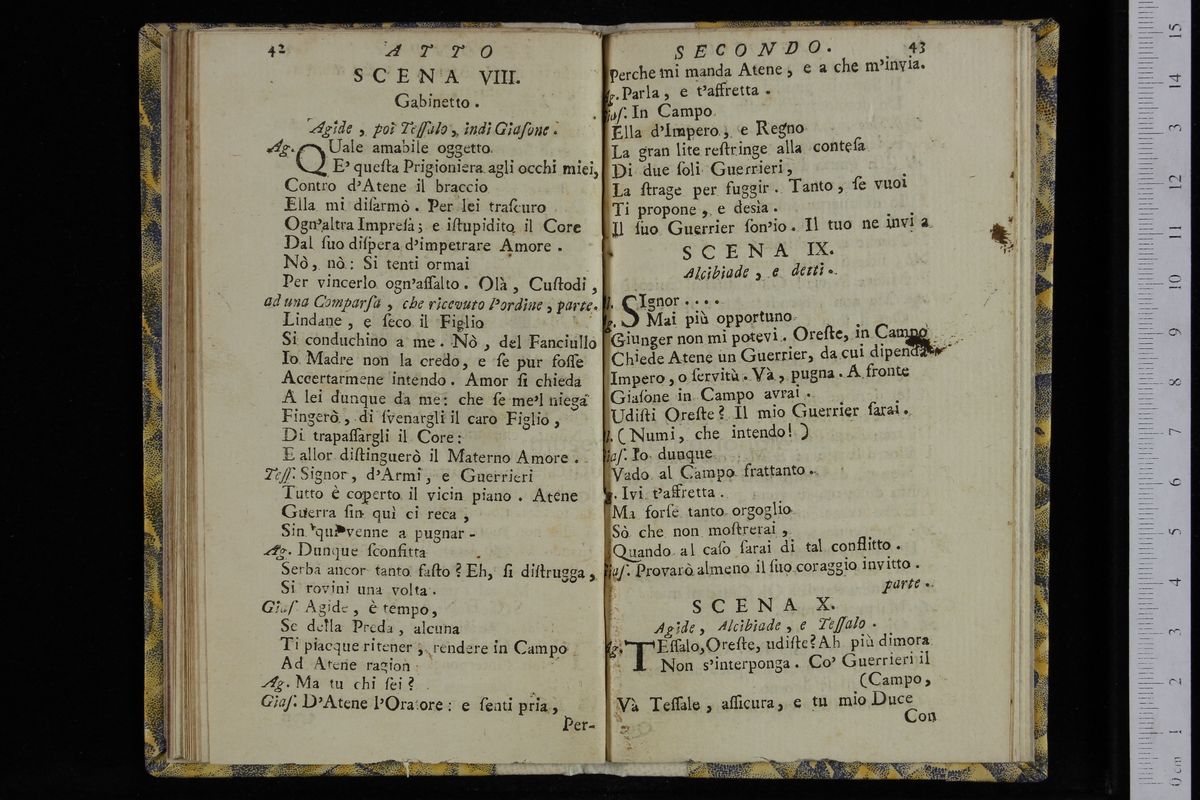 42 ATTO
SCENA VIII.
Gabinetto.
Agide, poi Teſſalo, indi Giaſone.
Ag. QUale amabile oggetto
E' queſta Prigioniera agli occhi miei,
Contro d'Atene il braccio
Ella mi diſarmò. Per lei traſcuro
Ogn'altra Impreſa; e iſtupidito il Core
Dal ſuo diſpera d'impetrare Amore.
Nò, nò: Si tenti ormai
Per vincerlo ogn'aſſalto. Olà, Cuſtodi,
ad una Comparſa, che ricevuto l'ordine, parte.
Lindane, e ſeco il Figlio
Si conduchino a me. Nò, del Fanciullo
Io Madre non la credo, e ſe pur foſſe
Accertarmene intendo. Amor ſi chieda
A lei dunque da me: che ſe me'l niega
Fingerò, di ſvenargli il caro Figlio,
Di trapaſſargli il Core:
E allor diſtinguerò il Materno Amore.
Teſſ. Signor, d'Armi, e Guerrieri
Tutto è coperto il vicin piano. Atene
Guerra fin quì ci reca,
Sin quì venne a pugnar-
Ag. Dunque ſconfitta
Serba ancor tanto faſto? Eh, ſi diſtrugga,
Si rovini una volta.
Giaſ. Agide, è tempo,
Se della Preda, alcuna
Ti piacque ritener, rendere in Campo
Ad Atene ragion
Ag. Ma tu chi ſei?
Giaſ. D'Atene l'Oratore: e ſenti pria,
Per-
SECONDO. 43
Perche mi manda Atene, e a che m'invia.
Ag. Parla, e t'affretta.
Giaſ. In Campo
Ella d'Impero, e Regno
La gran lite reſtringe alla conteſa
Di due ſoli Guerrieri,
La ſtrage per fuggir. Tanto, ſe vuoi
Ti propone, e desìa.
Il ſuo Guerrier ſon'io. Il tuo ne invi a
SCENA IX.
Alcibiade, e detti.
l. SIgnor....
g. Mai più opportuno
Giunger non mi potevi. Oreſte, in Campo
Chiede Atene un Guerrier, da cui dipenda
Impero, o ſervitù. Và, pugna. A fronte
Giaſone in Campo avrai.
Udiſti Oreſte? Il mio Guerrier ſarai.
l. (Numi, che intendo!)
iaſ. Io dunque
Vado al Campo frattanto.
g. Ivi t'affretta.
Ma forſe tanto orgoglio
Sò che non moſtrerai,
Quando al caſo ſarai di tal conflitto.
iaſ. Provarò almeno il ſuo coraggio invitto.
parte.
SCENA X.
Agide, Alcibiade, e Teſſalo.
Ag. TEſſalo, Oreſte, udiſte? Ah più dimora
Non s'interponga. Co' Guerrieri il
(Campo,
Và Teſſale, aſſicura, e tu mio Duce
Con